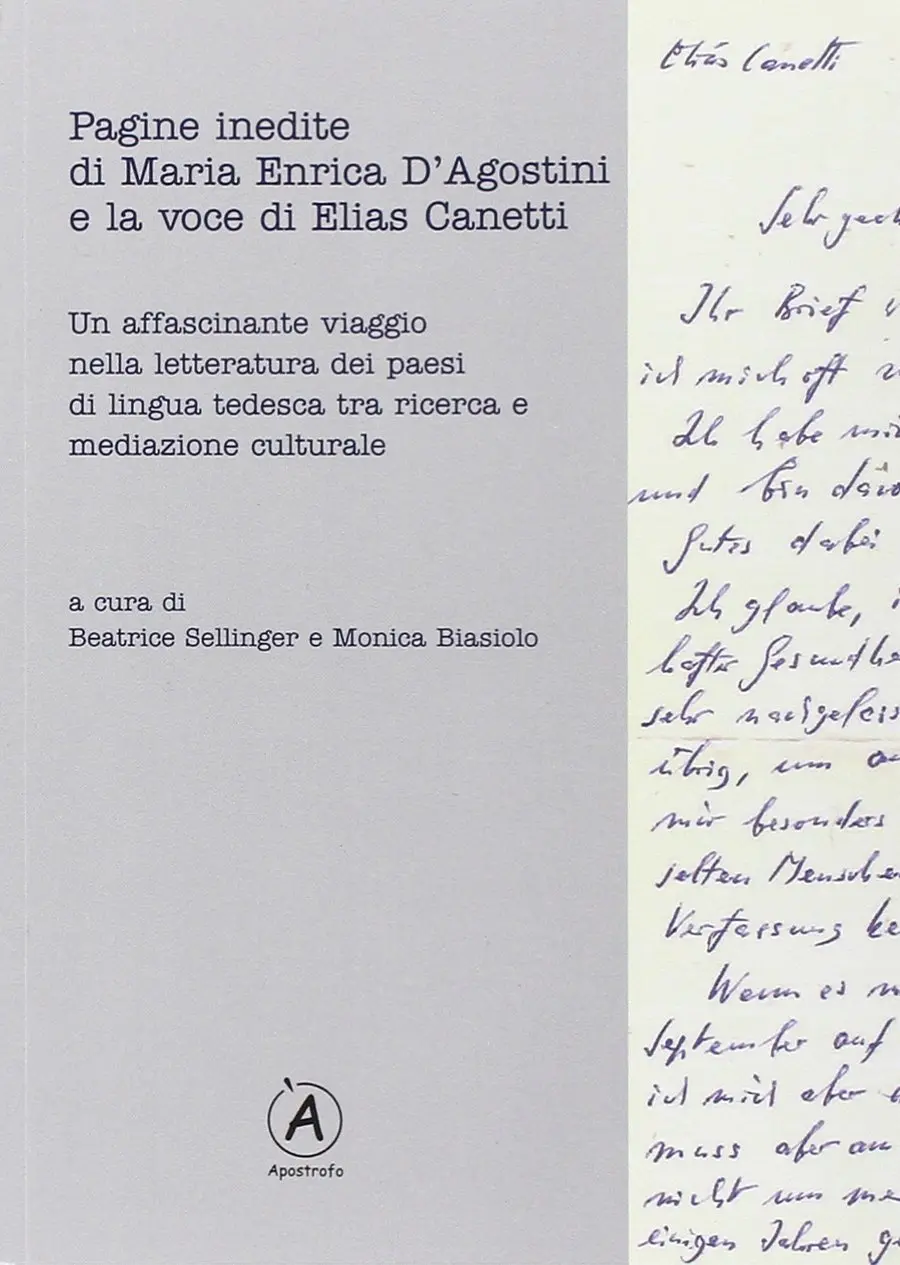 Pagine inedite
di Maria Enrica D'Agostini
e la voce di Elias Canetti
Un affascinante viaggio
nella letteratura dei paesi
di lingua tedesca tra ricerca e
mediazione culturale
a cura di
Beatrice Sellinger e Monica Biasiolo
À
Apostrofo
Elias Canetti
Sehr geeh
Ihr Brief
ich mich oft
Ich habe mi
und bin
Gutes dabei
Ich glaube,
hafte Gesundhe
sehr
übrig, um
mir besonders
selten Mensche
Verfassung
Wenn es
September auf
ich mich aber
muss aber am
nicht um me
einigen Jahren